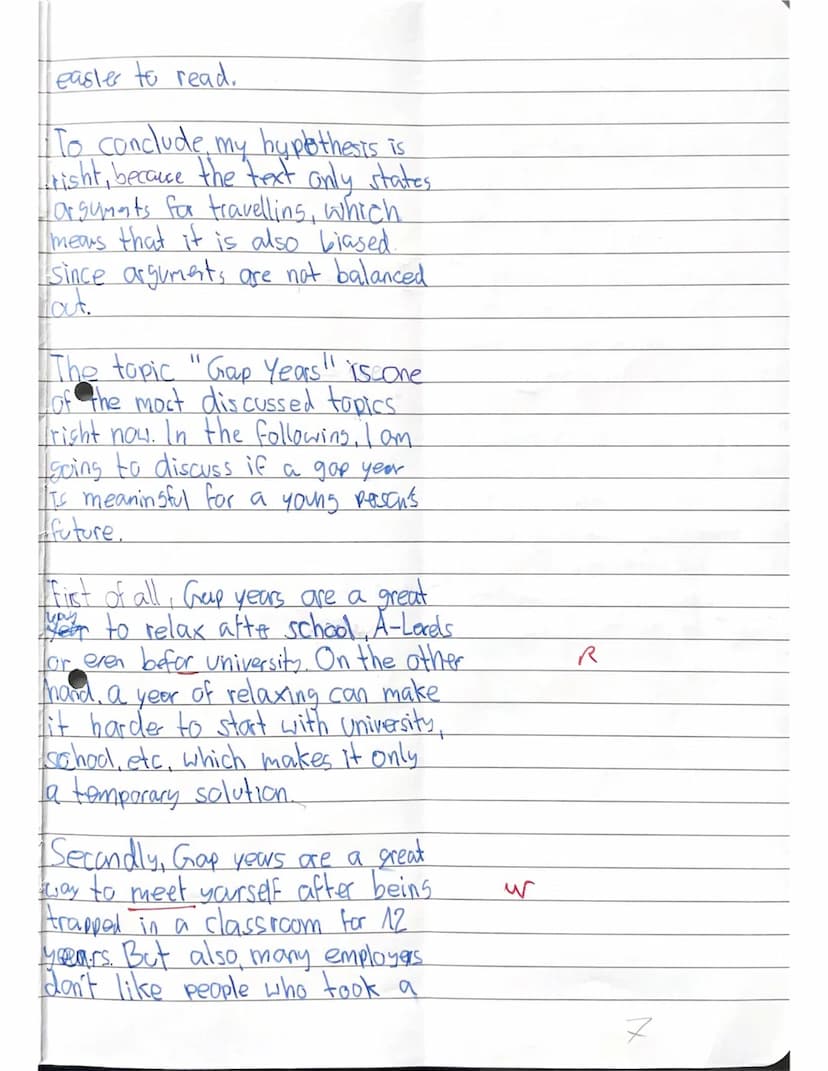 easier to read.
To conclude, my hypothesis is
right, because the text only states
arguments for travelling, which
means that it is also biased
since arguments are not balanced
out.
The topic "Gap Years" is one
of the most discussed topics
right now. In the following, I am
going to discuss if a gap year
is meaningful for a young person's
future.
First of all, Gap years are a great
way to relax after school, A-Levels
or even befor university. On the other R
hand, a year of relaxing can make
it harder to start with university,
school, etc, which makes it only
a temporary solution.
Secondly, Gap years are a great
way to meet yourself after being W
trapped in a classroom for 12
years. But also, many employers
don't like people who took a
7